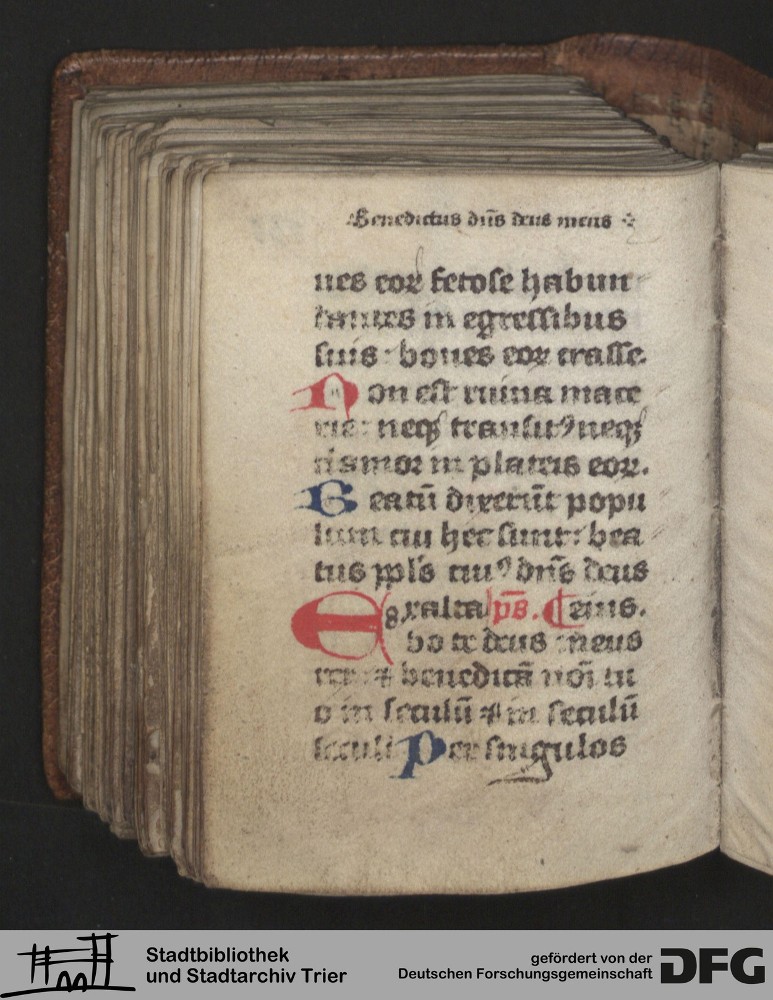 Benedictus dn̄s deus meus
ues eoꝝ fetose habun
dantes in egressibus
suis : boues eoꝝ crasse.
Non est ruina mace
rie : neqꝫ transitꝰ neqꝫ
clamor in plateis eoꝝ.
Beatū dixerūt popu
lum cui hec sunt : bea
tus ppl̄s cuiꝰ dn̄s deus
Exalta ps̄. eius.
bo te deus meus
rex : ⁊ benedicā noī tu
o in seculū ⁊ in seculū
seculi Per singulos
Stadtbibliothek
und Stadtarchiv Trier
gefördert von der
Deutschen Forschungsgemeinschaft
DFG